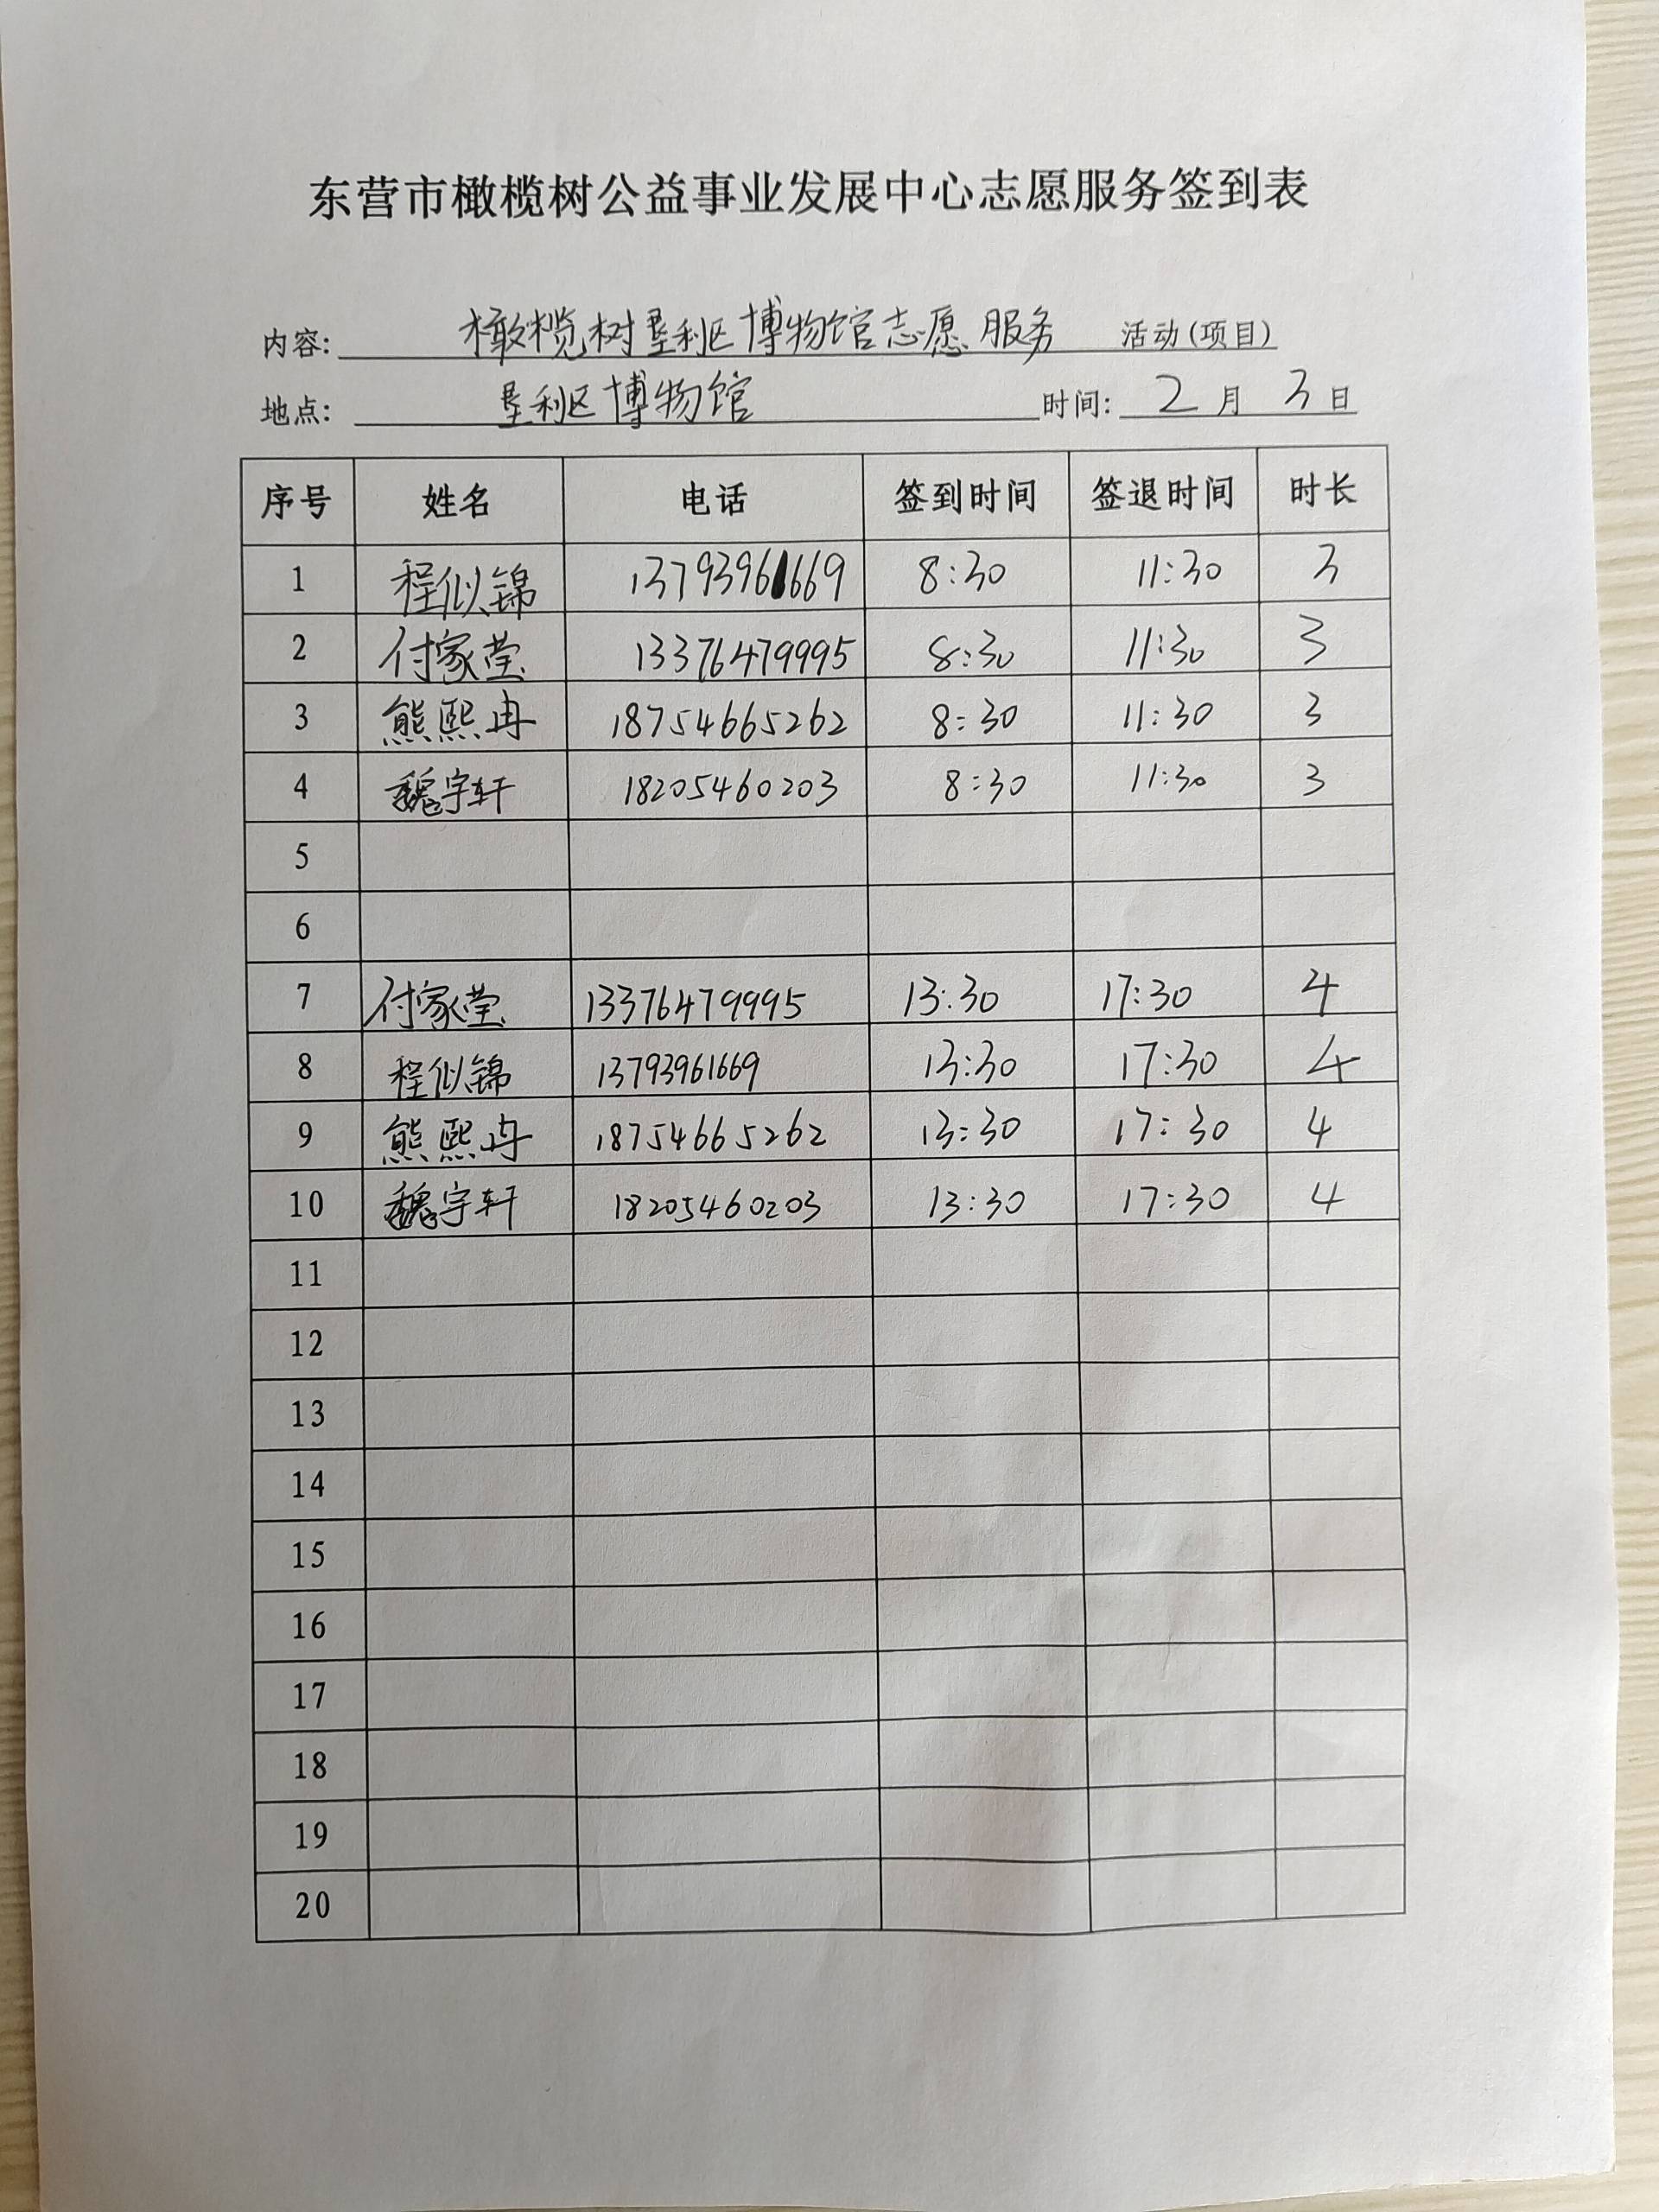 东营市橄榄树公益事业发展中心志愿服务签到表
内容: 橄榄树垦利区博物馆志愿服务 活动(项目)
地点: 垦利区博物馆 时间: 2 月 3 日
序号 姓名 电话 签到时间 签退时间 时长
1 程似锦 13793961669 8:30 11:30 3
2 付家莹 13376479995 8:30 11:30 3
3 熊熙冉 18754665262 8:30 11:30 3
4 魏宇轩 18205460203 8:30 11:30 3
5
6
7 付家莹 13376479995 13:30 17:30 4
8 程似锦 13793961669 13:30 17:30 4
9 熊熙冉 18754665262 13:30 17:30 4
10 魏宇轩 18205460203 13:30 17:30 4
11
12
13
14
15
16
17
18
19
20